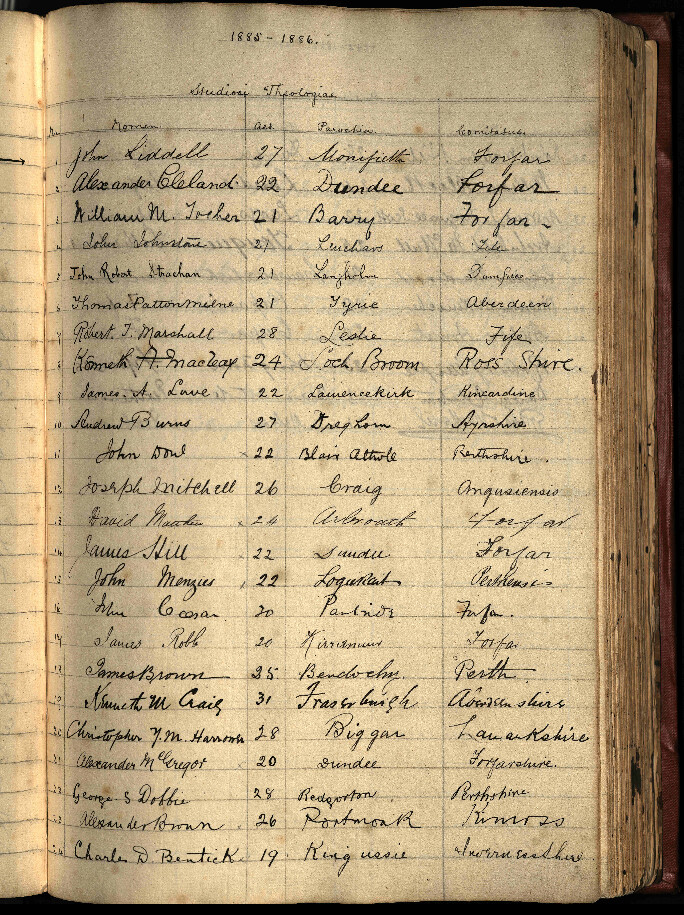 1885 - 1886.
Studiosi Theologiae
Nomen Aet. Parochia Comitatus
1 John Liddell 27 Monifieth Forfar
2 Alexander Cleland 22 Dundee Forfar
3 William M. Tocher 21 Barry Forfar
4 John Johnstone 27 Leuchars Fife
5 John Robert Strachan 21 Langholm Dumfries
6 Thomas Patton Milne 21 Tyrie Aberdeen
7 Robert T. Marshall 28 Leslie Fife
8 Kenneth A. Macleay 24 Loch Broom Ross Shire.
9 James A. Love 22 Laurencekirk Kincardine
10 Andrew Burns 27 Dreghorn Ayrshire
11 John 22 Blair Athole Perthshire.
12 Joseph Mitchell 26 Craig Angusiensis
13 David 24 Arbroath Forfar
14 James Hill 22 Dundee Forfar
15 John Menzies 22 Logierait Perthensis
16 John Caesar 20 Panbride Forfar.
17 James Robb 20 Kirriemuir Forfar
18 James Brown 25 Bendochy. Perth
19 Kenneth M Craig 31 Fraserburgh Aberdeenshire
20 Christopher Y. M. Harrower 28 Biggar Lanarkshire
21 Alexander McGregor 20 Dundee Forfarshire.
22 George S Dobbie 28 Redgorton Perthshire
23 Alexander Brown 26 Portmoak Kinross
24 Charles D. Bentick. 19. Kingussie Invernessshire.